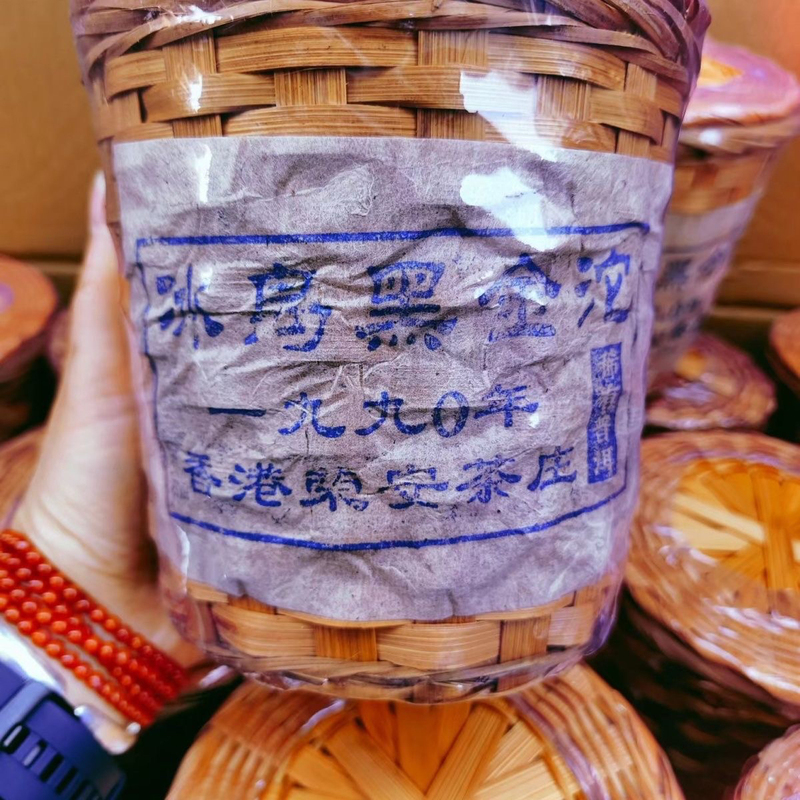 冰島黑金沱
一九九0年
香港 安茶庄